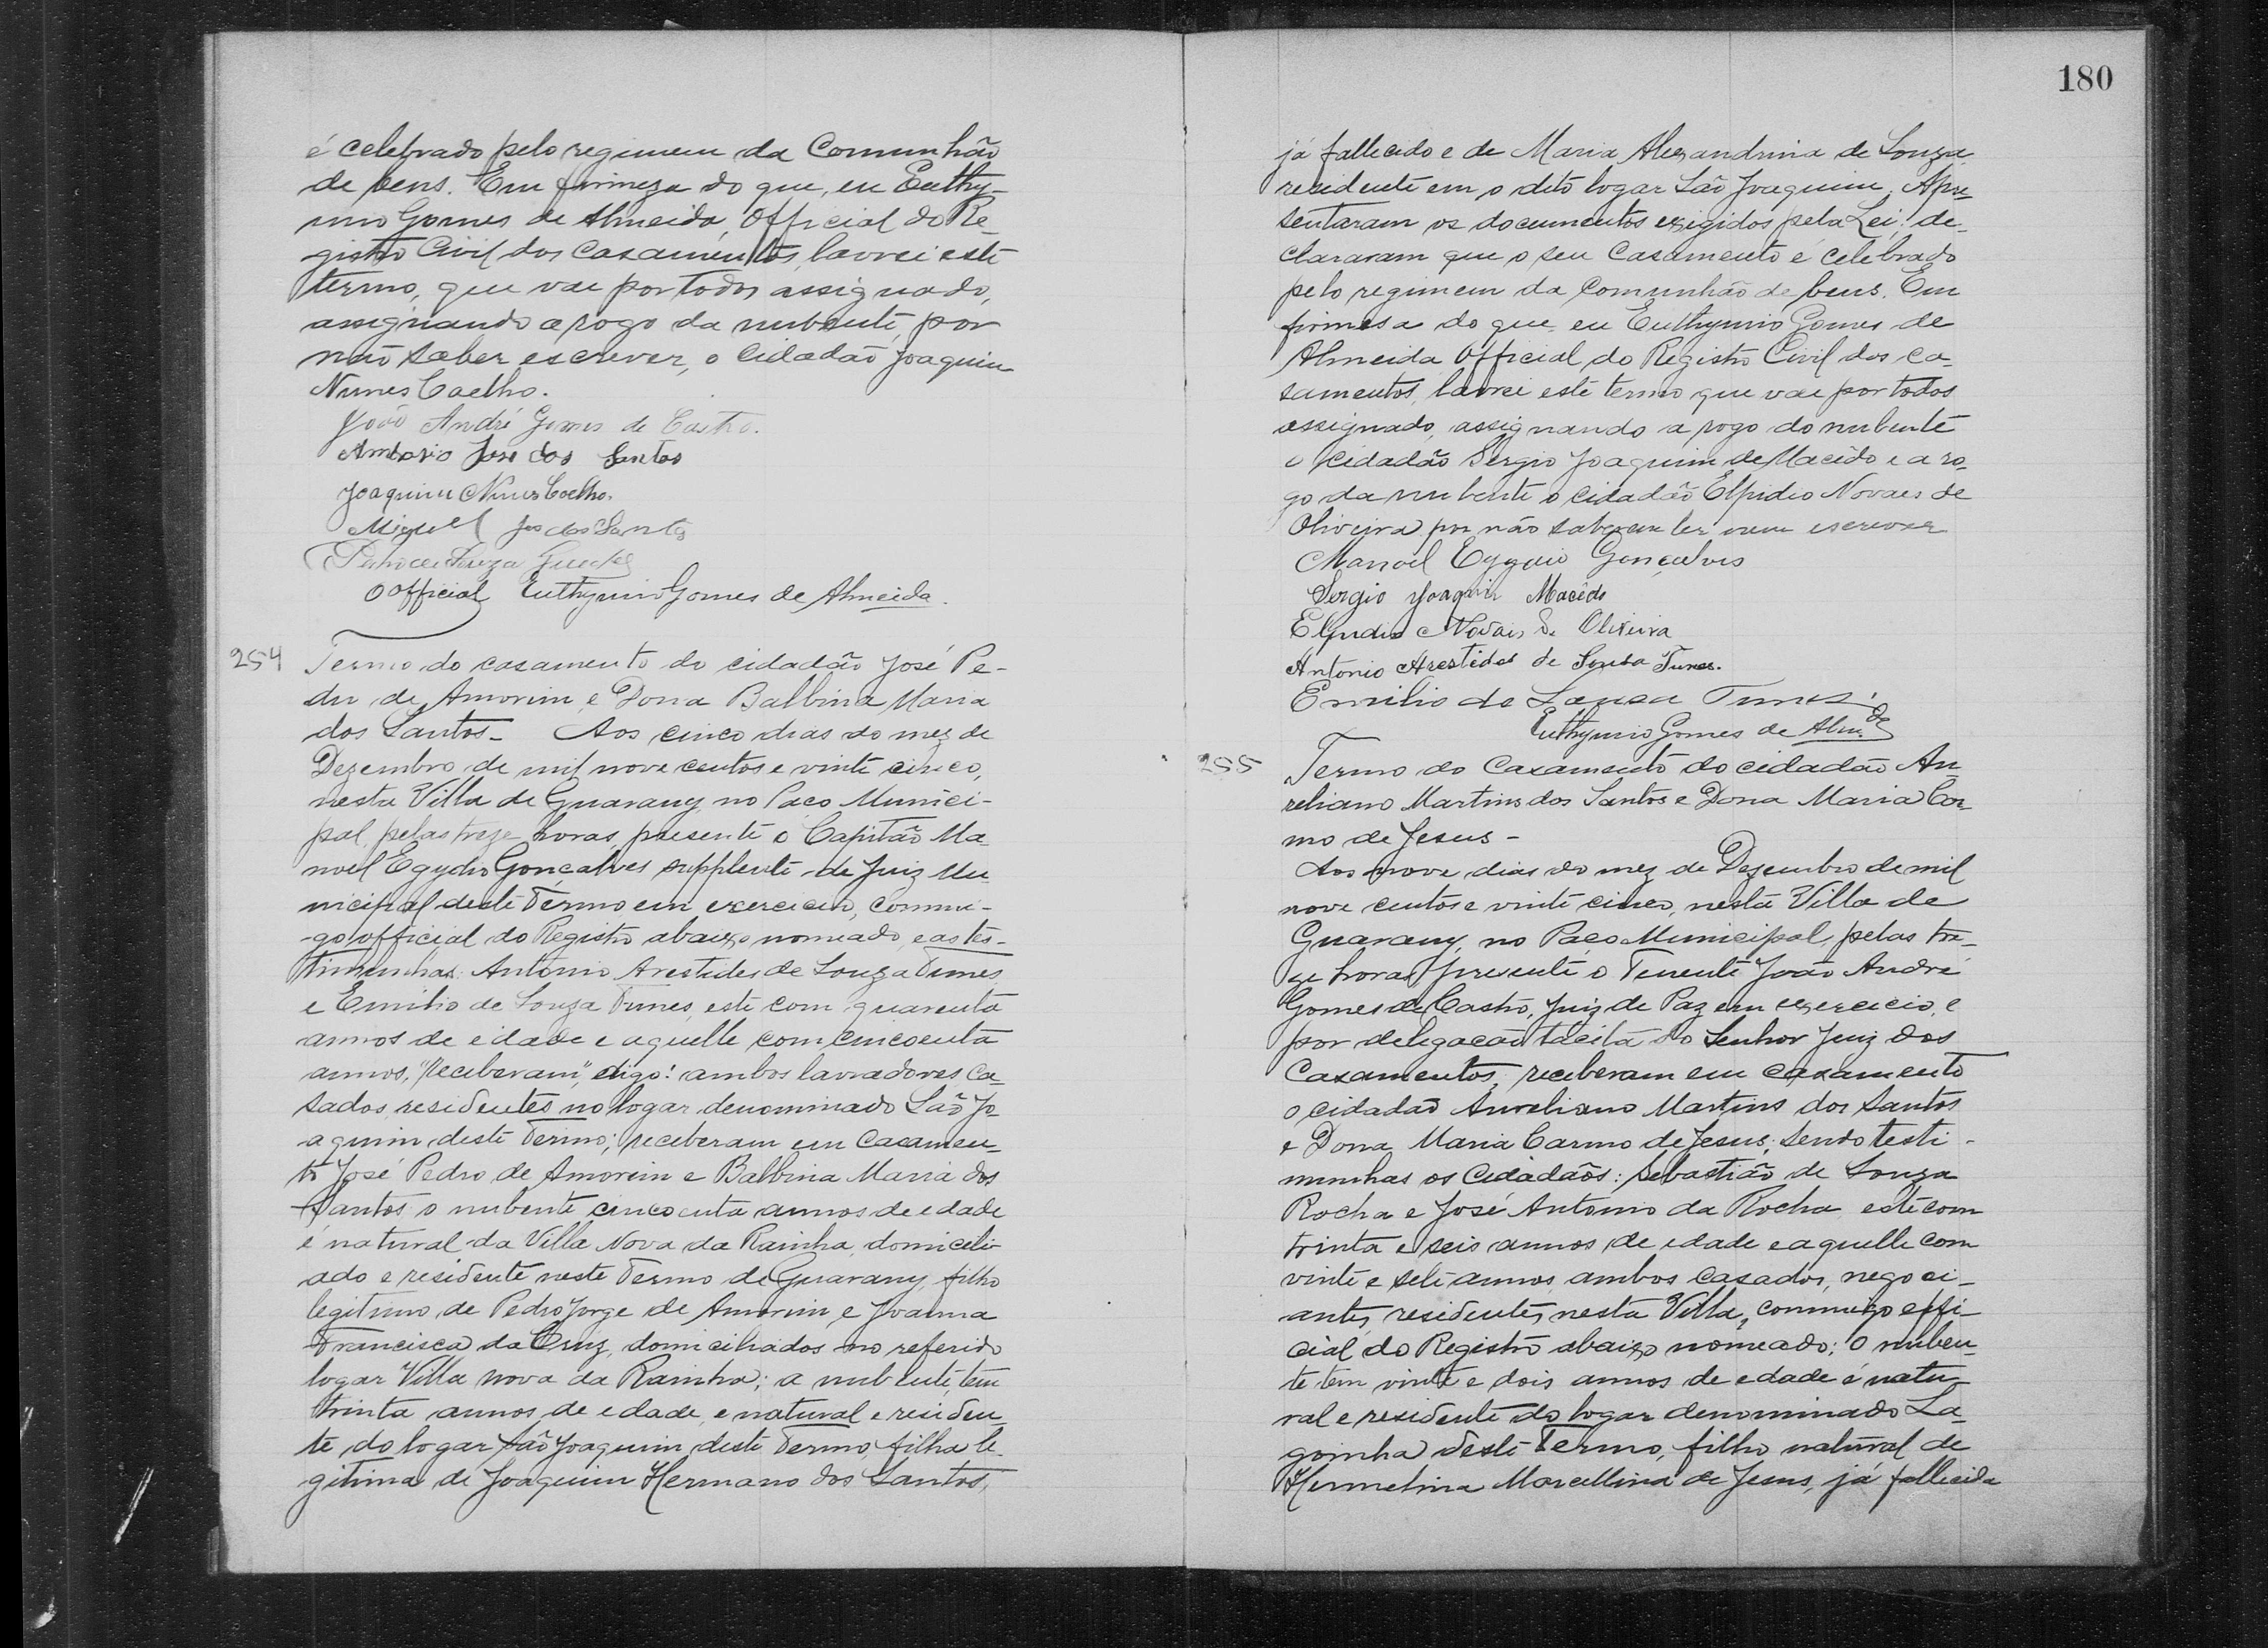 é celebrado pelo regimem da Comunhão
de bens. Em firmeza do que, eu Euthy-
mio Gomes de Almeida, Official do Re-
gistro Civil dos Casamentos, lavrei este
termo, que vae por todos assignado,
assignando a rogo da nubente, por
não saber escrever, o cidadão Joaquim
Nunes Coelho.
João André Gomes de Castro.
Ambrosio José dos Santos
Joaquim Nunes Coelho.
Miguel Jos dos Santos
Pedro de Souza Guedes
O official Euthymio Gomes de Almeida.
254 Termo do casamento do cidadão José Pe-
dro de Amorim e Dona Balbina Maria
dos Santos - Aos cinco dias do mez de
Dezembro de mil nove centos e vinte cinco,
nesta Villa de Guarany, no Paço Munici-
pal, pelas treze horas, presente o Capitão Ma-
noel Egydio Gonçalves supplente de Juiz Mu-
nicipal deste Termo em exercicio, commi-
-go official do Registro abaixo nomeado, e as tes-
timunhas: Antonio Arestides de Souza Tunes
e Emilio de Souza Tunes, este com quarenta
annos de edade e aquelle com cincoenta
annos, "receberam", digo: ambos lavradores ca-
sados, residentes no logar denominado São Jo-
aquim, deste Termo; receberam em Casamen-
to José Pedro de Amorim e Balbina Maria dos
Santos, o nubente cincoenta annos de edade
é natural da Villa Nova da Rainha, domicili-
ado e residente neste Termo de Guarany, filho
legitimo de Pedro Jorge de Amorim e Joanna
Francisca da Cruz, domiciliados no referido
logar Villa nova da Rainha; a nubente, tem
trinta annos de edade, e natural e residen-
te do logar São Joaquim, deste Termo, filha le-
gitima de Joaquim Hermano dos Santos,
180
já fallecido e de Maria Alexandrina de Souza
residente em o dito logar São Joaquim. Apre-
sentaram os documentos exigidos pela Lei; de-
clararam que o seu Casamento é celebrado
pelo regimem da Comunhão de bens. Em
firmesa do que, eu Euthymio Gomes de
Almeida Official do Registro Civil dos ca-
samentos, lavrei este termo que vae por todos
assignado, assignando a rogo do nubente
o cidadão Sergio Joaquim de Macêdo e a ro-
go da nubente o cidadão Elpidio Novaes de
Oliveira por não saberem ler nem escrever
Manoel Egydio Gonçalves
Sergio Joaquim Macêdo
Elpidio Novais de Oliveira
Antonio Arestides de Sousa Tunes.
Emilio de Sousa Tunes.
Euthymio Gomes de Alm.da
255 Termo do Casamento do cidadão Au-
reliano Martins dos Santos e Dona Maria Car-
mo de Jesus -
Aos nove dias do mez de Dezembro de mil
nove centos e vinte cinco, nesta Villa de
Guarany, no Paço Municipal, pelas tre-
ze horas, presente o Tenente João André
Gomes de Castro, Juiz de Paz em exercicio, e
por delegacão tacita do Senhor Juiz dos
Casamentos, receberam em casamento
o cidadão Aureliano Martins dos Santos
e Dona Maria Carmo de Jesus; sendo testi-
munhas os Cidadãos: Sebastião de Souza
Rocha e José Antonio da Rocha, este com
trinta e seis annos de edade e aquelle com
vinte e sete annos, ambos casados, negoci-
antes, residentes nesta Villa, commigo offi-
cial do Registro abaixo nomeado; O nuben-
te tem vinte e dois annos de edade é natu-
ral e residente do logar denominado La-
goinha deste Termo, filho natural de
Hermelina Marcellina de Jesus, já fallecida